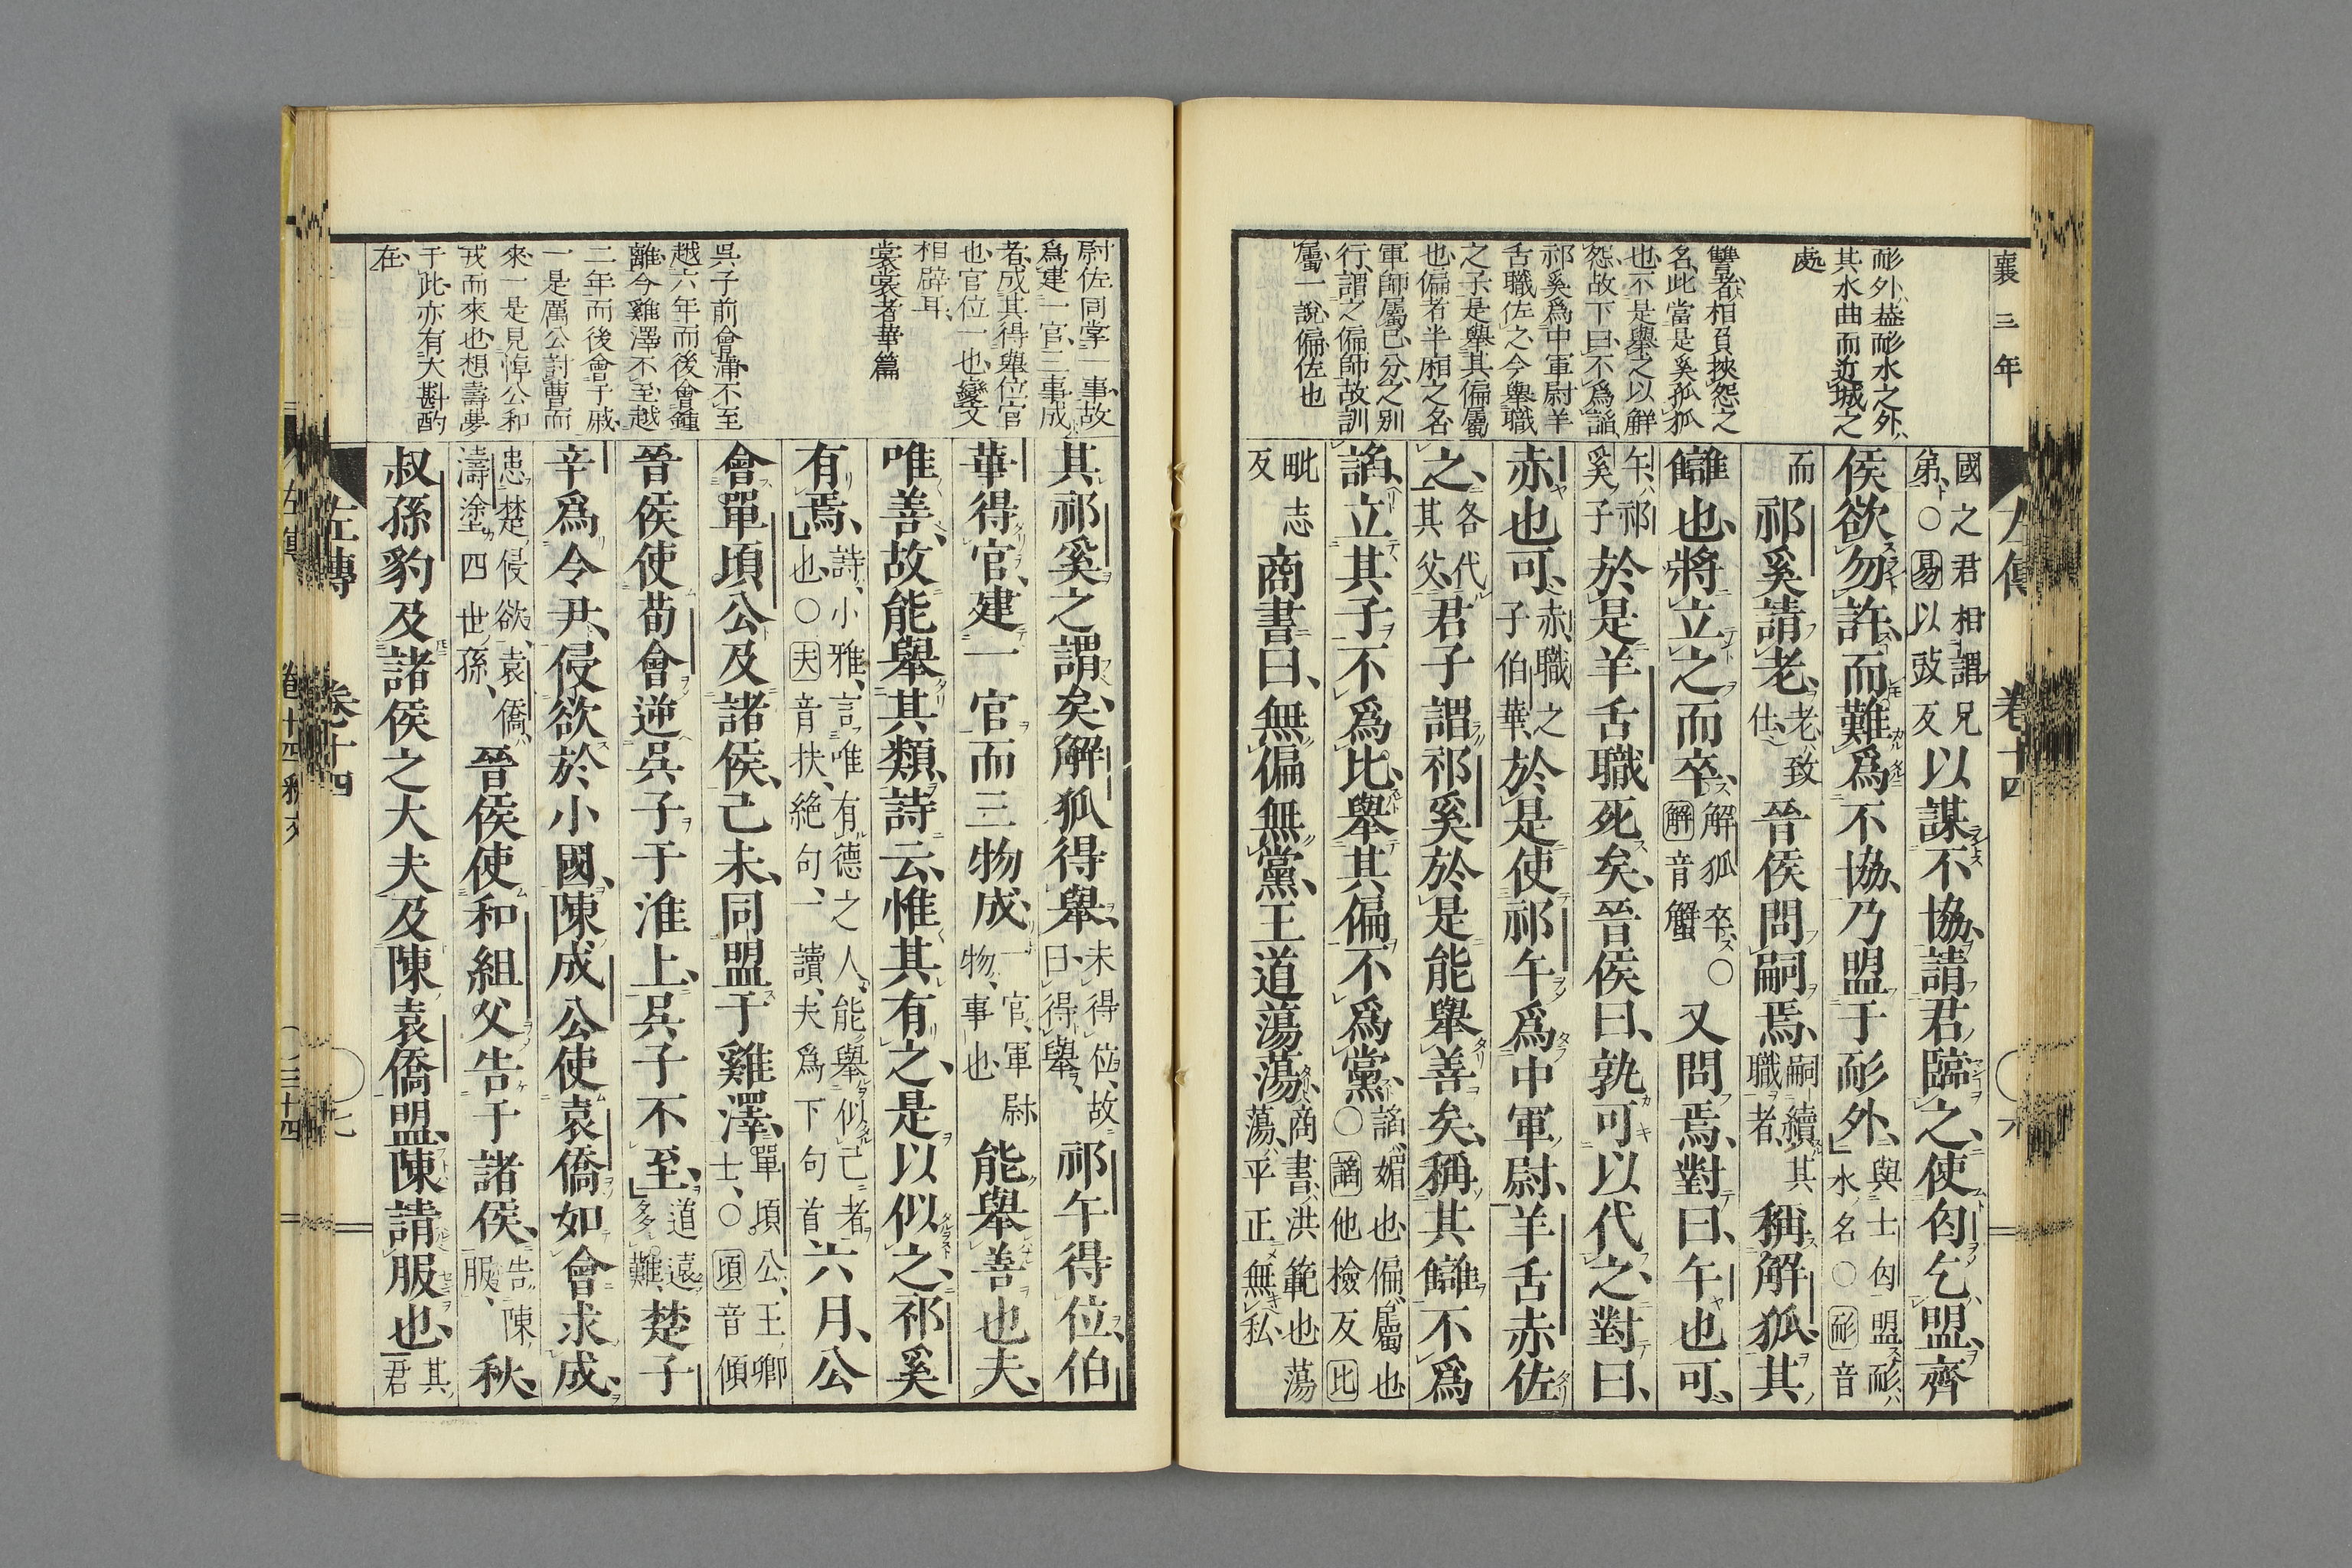 襄三年
左傳 卷十四
耏外蓋耏水之外
其水曲而近城之
處
讐者相負挾怨之
名此當是奚狐狐
也不是舉之以解
怨故下曰不爲謟
祁奚爲中軍尉羊
舌職佐之今舉職
之子是舉其偏屬
也偏者半廂之名
軍師屬已分之別
行謂之偏師故訓
屬一說偏佐也
國之君相謂兄
弟○易以豉反
以謀不協請君臨之使匄乞盟齊
侯欲勿許而難爲不協乃盟于耏外
與士匄盟耏
水名○耏音
而
祁奚請老
老致
仕
晉侯問嗣焉
嗣續其
職者
稱解狐其
讎也將立之而卒
解狐卒○
解音蟹
又問焉對曰午也可
午祁
奚子
於是羊舌職死矣晉侯曰孰可以代之對曰
赤也可
赤職之
子伯華
於是使祁午爲中軍尉羊舌赤佐
之
各代
其父
君子謂祁奚於是能舉善矣稱其讎不爲
謟立其子不爲比舉其偏不爲黨
謟媚也偏屬也
○謟他檢反比
毗志
反
商書曰無偏無黨王道蕩蕩
商書洪範也蕩
蕩平正無私
尉佐同掌一事故
爲建一官二事成
者成其得舉位官
也官位一也變文
相辟耳
裳裳者華篇
吳子前會蒲不至
越六年而後會鍾
離今雞澤不至越
二年而後會于戚
一是厲公討曹而
來一是見悼公和
戎而來也想壽夢
于此亦有大斟酌
在
其祁奚之謂矣解狐得舉
未得位故
曰得舉
祁午得位伯
華得官建一官而三物成
一官軍尉
物事也
能舉善也夫
唯善故能舉其類詩云惟其有之是以似之祁奚
有焉
詩小雅言唯有德之人能舉似己者
也○夫音扶絕句一讀夫爲下句首
六月公
會單頃公及諸侯己未同盟于雞澤
單頃公王卿
士○頃音傾
晉侯使荀會逆吳子于淮上吳子不至
道遠
多難
楚子
辛爲令尹侵欲於小國陳成公使袁僑如會求成
患楚侵欲袁僑
濤塗四世孫
晉侯使和組父告于諸侯
告陳
服
秋
叔孫豹及諸侯之大夫及陳袁僑盟陳請服也
其
君
左傳 卷十四 七